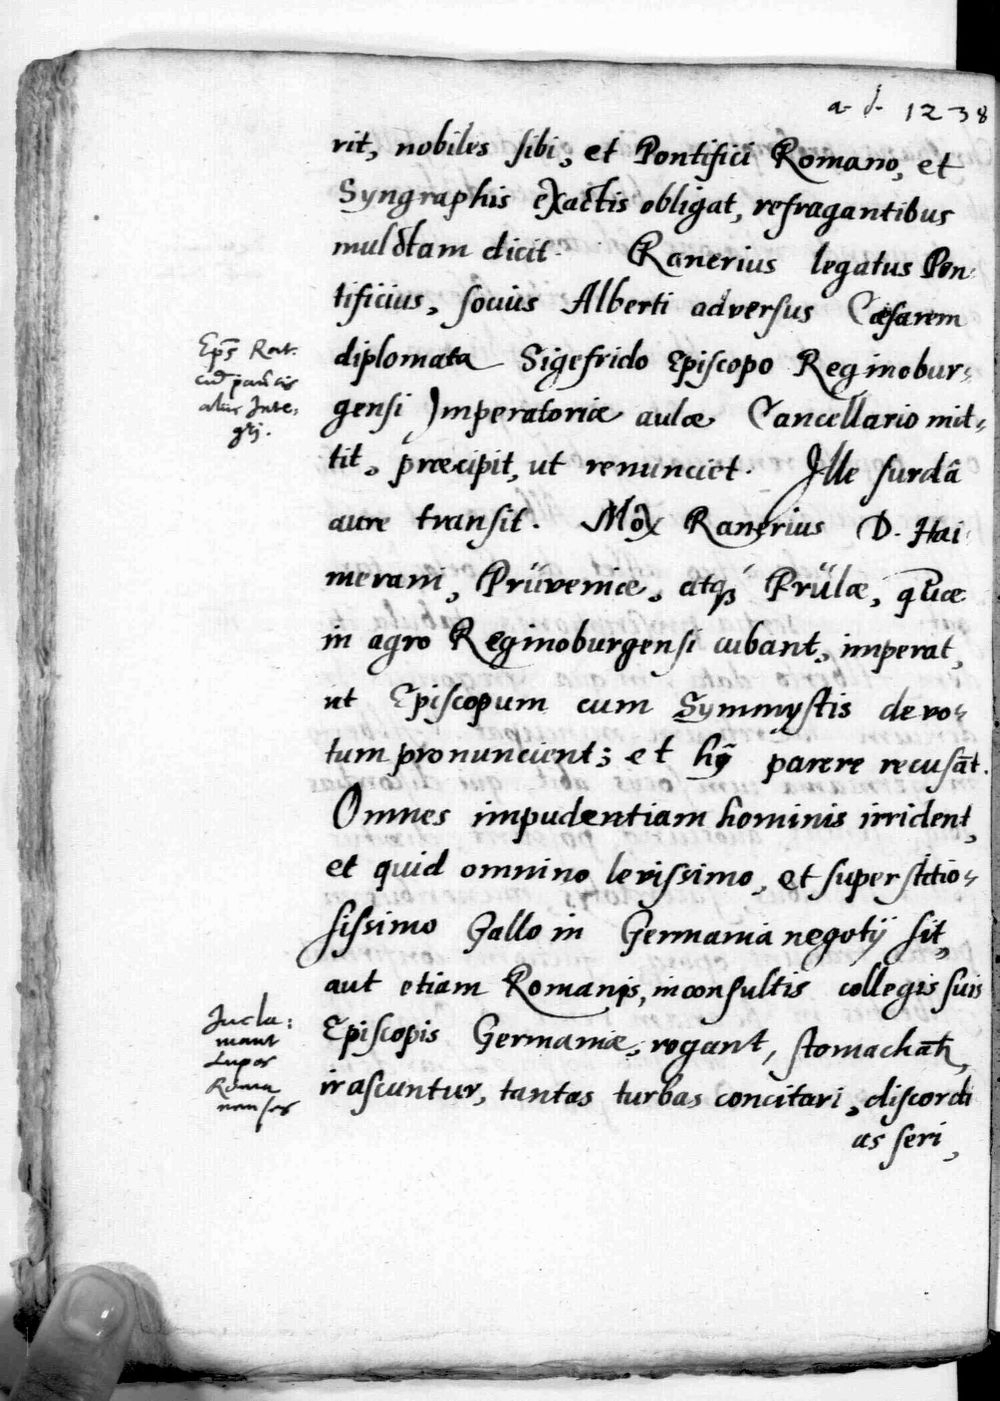 a. d. 1238
rit, nobiles sibi, et Pontifici Romano, et
Syngraphis exactis obligat, refragantibus
mulctam dicit. Ranerius legatus Pon-
tificius, socius Alberti adversus Cæsarem
diplomata Sigefrido Episcopo Reginobur-
gensi Imperatoriæ aulæ Cancellario mit-
tit, præcipit, ut renunciet. Ille surdâ
aure transit. Mox Ranerius D. Hai-
merani, Prüvenicæ, atq̄ Prülæ, quæ
in agro Reginoburgensi cubant, imperat,
ut Episcopum cum Symmystis devo-
tum pronuncient; et hÿ parere recusāt.
Omnes impudentiam hominis irrident,
et quid omnino levissimo, et superstitio-
sissimo Gallo in Germania negotÿ sit,
aut etiam Romanis, inconsultis collegis suis
Episcopis Germaniæ, rogant, stomachāt,
irascuntur, tantas turbas concitari, discordi
as seri,
Ep̄s Rat.
cū paucis
aliis Inte-
grj.
Incla:
mant
Lupos
Roma
nenses